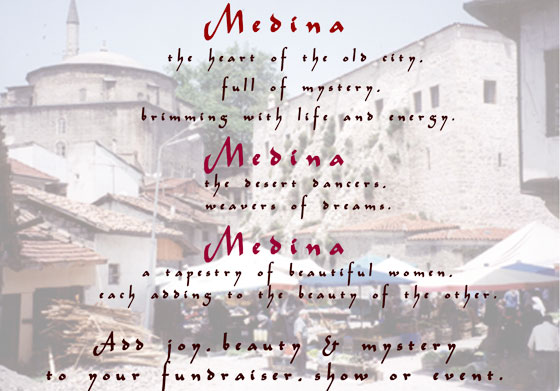 Medina
the heart of the old city.
full of mystery.
brimming with life and energy.
Medina
the desert dancers.
weavers of dreams.
Medina
a tapestry of beautiful women.
each adding to the beauty of the other.
Add joy. beauty & mystery
to your fundraiser. show or event.